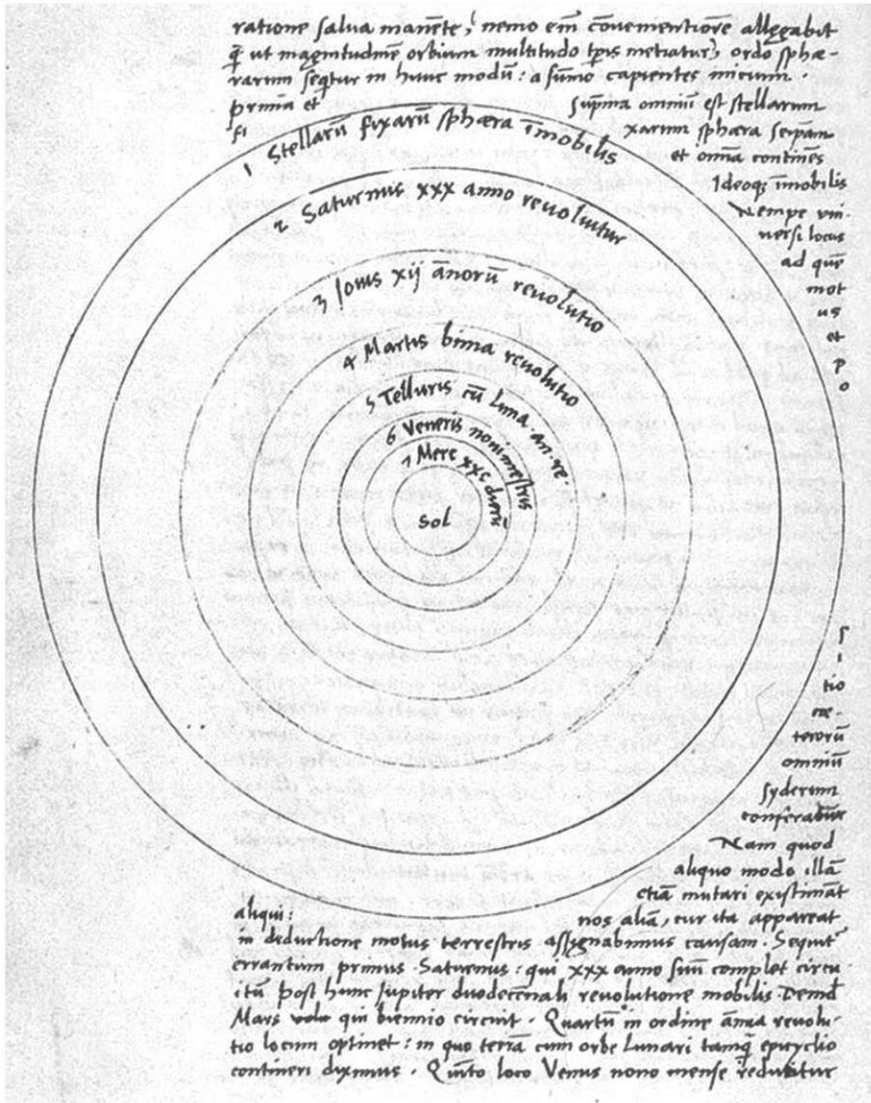 ratione salua manẽte, nemo em̃ cõuenientiorẽ allegabit
q̃ ut magnitudinẽ orbium multitudo tp̃is metiatur, ordo sphæ-
rarum seqtur in hunc modũ: a sum̃o capientes inicium.
prima et sup̃ma omniũ est stellarum
fi xarum sphæra seip̃am
et om̃ia continẽs
Ideoq; im̃obilis
Nempe uni-
uersi locus
ad quẽ
mot
us
et
p
o
1 Stellarũ fixarũ sphæra im̃obilis
2 Saturnus xxx anno reuoluitur
3 Iouis xij añorũ reuolutio
4 Martis bima reuolutio
5 Telluris cũ Luna. an. re.
6 Veneris nonimestris
7 Merc xxc dierũ
Sol
s
i
tio
cæ-
terorũ
omniũ
syderum
conferatur
Nam quod
aliquo modo illã
etiã mutari existimãt
aliqui: nos aliã, cur ita appareat
in deductione motus terrestris assignabimus causam. Sequit
errantium primus Saturnus: qui xxx anno suũ complet circu
itũ post hunc Jupiter duodecennali reuolutione mobilis. Deind
Mars qui biennio circuit. Quartũ in ordine añua reuolu-
tio locum optinet: in quo terrã cum orbe Lunari tamq̃ epicyclio
contineri diximus. Quĩto loco Venus nono mense reducitur